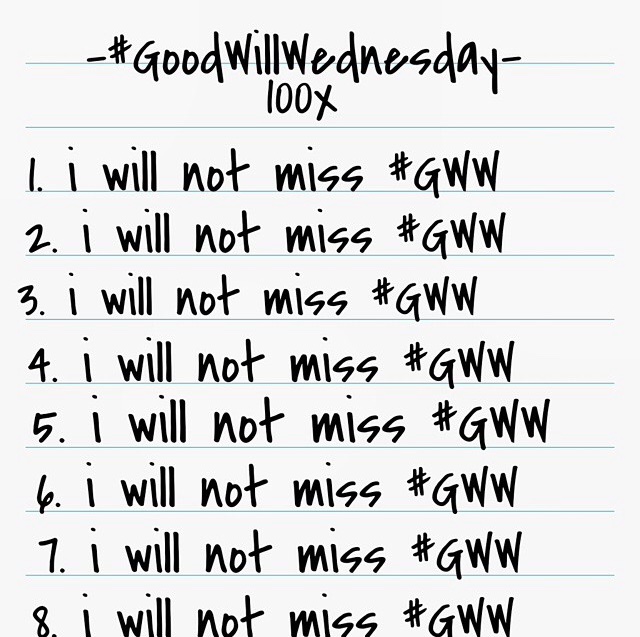 -#GoodWillWednesday-
100x
1. i will not miss #GWW
2. i will not miss #GWW
3. i will not miss #GWW
4. i will not miss #GWW
5. i will not miss #GWW
6. i will not miss #GWW
7. i will not miss #GWW
8. i will not miss #GWW